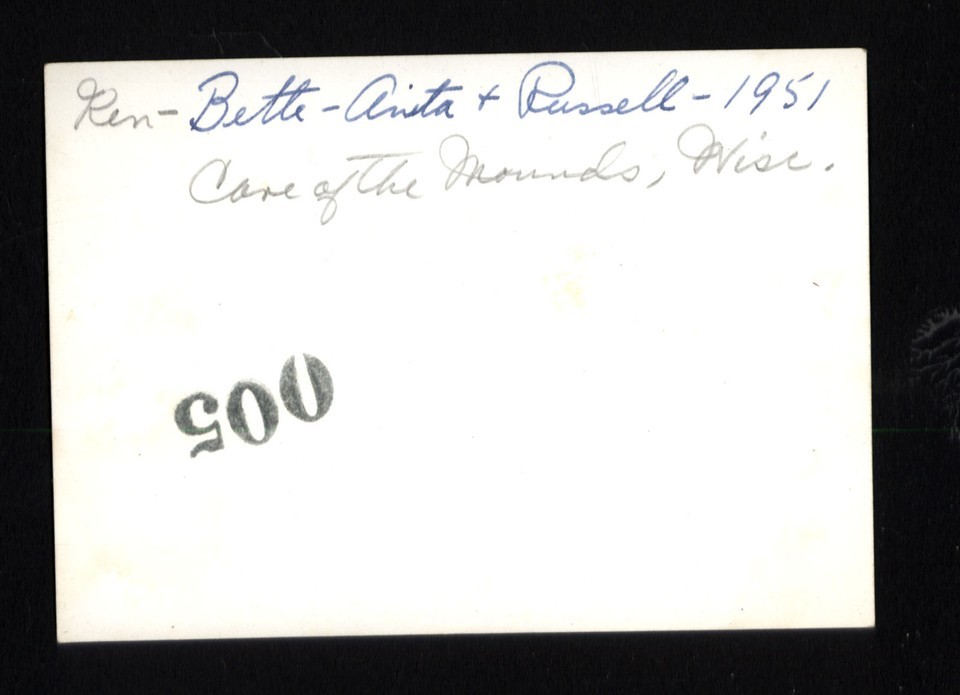 Ken- Bette - Anita + Russell - 1951
Cave of The Mounds, Wisc.
005